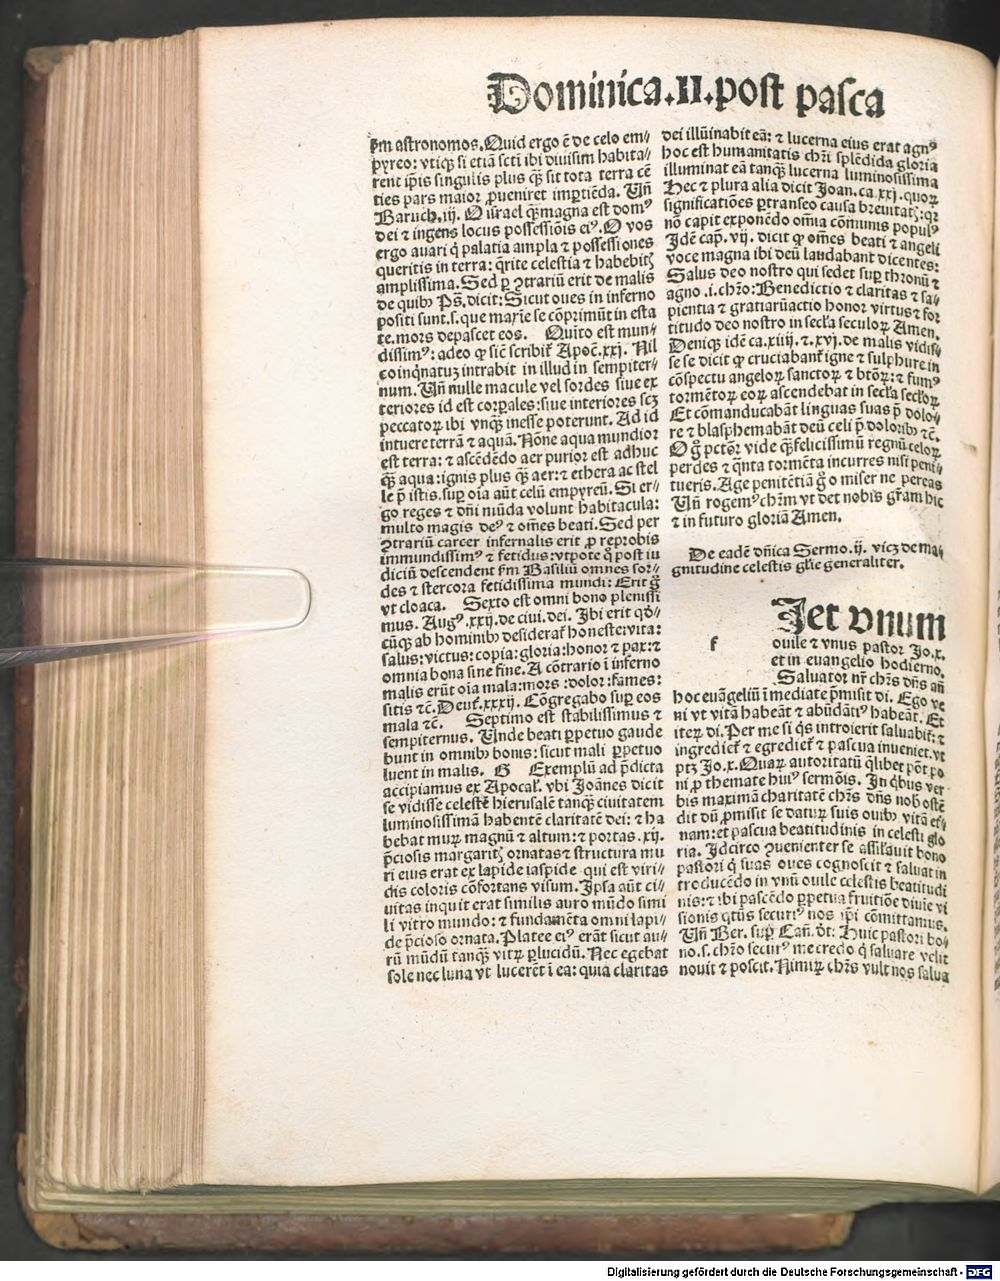 Dominica.II.post pasca
ẜm astronomos.Quid ergo ē de celo em/
pyreo: vtiqꝫ si etiā scti ibi diuisim habita/
rent ip̄is singulis plus qꝫ̄ sit tota terra cē
ties pars maior ꝓueniret imꝑtiēda. Uñ
Baruch.iij. O israel qꝫ̄magna est domꝰ
dei ⁊ ingens locus possessiōis eiꝰ.O vos
ergo auari q̇ palatia ampla ⁊ possessiones
queritis in terra: q̄rite celestia ⁊ habebitꝭ
amplissima.Sed ꝑ ꝯtrariū erit de malis
de quibꝰ Ps̄.dicit:Sicut oues in inferno
positi sunt.s.que maxīe se cōprimūt in esta
te.mors depascet eos. Quīto est mun/
dissimꝰ: adeo ꝙ sic scribit᷑ Apoc̄.xxj. Nil
coinq̇natuꝫ intrabit in illud in sempiter/
num. Uñ nulle macule vel sordes siue ex
teriores id est corꝑales:siue interiores scꝫ
peccatoꝝ ibi vnqꝫ̄ inesse poterunt. Ad id
intuere terrā ⁊ aquā.Nōne aqua mundior
est terra: ⁊ ascēdēdo aer purior est adhuc
qꝫ̄ aqua:ignis plus qꝫ̄ aer:⁊ ethera ac stel
le p̄ istis.suꝑ oīa aūt celū empyreū.Si er/
go reges ⁊ dn̄i mūda volunt habitacula:
multo magis deꝰ ⁊ om̄es beati.Sed per
ꝯtrariū carcer infernalis erit ꝓ reprobis
immundissimꝰ ⁊ fetidus:vtpote q̇ post iu
diciū descendent ẜm Basiliū omnes sor/
des ⁊ stercora fetidissima mundi: Erit g̊
vt cloaca. Sexto est omni bono plenissi
mus. Augꝰ.xxij.de ciui.dei. Ibi erit qd̄/
cūqꝫ ab hominibꝰ desiderat᷑ honeste:vita:
salus:victus:copia:gloria:honor ⁊ pax:⁊
omnia bona sine fine.A cōtrario ī inferno
malis erūt oīa mala:mors :dolor:fames:
sitis ⁊c̄.Deut̄.xxxij. Cōgregabo suꝑ eos
mala ⁊c̄. Septimo est stabilissimus ⁊
sempiternus. Unde beati ꝑpetuo gaude
bunt in omnibꝰ bonis: sicut mali ꝑpetuo
luent in malis. G Exemplū ad p̄dicta
accipiamus ex Apocal̄. vbi Joānes dicit
se vidisse celestē hierusalē tanqꝫ̄ ciuitatem
luminosissimā habentē claritatē dei: ⁊ ha
bebat muꝝ magnū ⁊ altum: ⁊ portas .xij.
p̄ciosis margaritꝭ ornatas ⁊ structura mu
ri eius erat ex lapide iaspide qui est viri/
dis coloris cōfortans visum.Ipsa aūt ci/
uitas inquit erat similis auro mūdo simi
li vitro mundo: ⁊ fundamēta omni lapi/
de p̄cioso ornata.Platee eiꝰ erāt sicut au/
rū mūdū tanqꝫ̄ vitꝝ ꝑlucidū. Nec egebat
sole nec luna vt lucerēt ī ea: quia claritas
dei illūinabit eā: ⁊ lucerna eius erat agnꝰ
hoc est humanitatis chr̄i splēdida gloria
illuminat eā tanqꝫ̄ lucerna luminosissima
Hec ⁊ plura alia dicit Joan.ca.xxj.quoꝝ
significatiōes ꝑtranseo causa breuitatꝭ:qꝛ
nō capit exponēdo om̄ia cōmunis populꝰ
Idē cap̄. vij. dicit ꝙ om̄es beati ⁊ angeli
voce magna ibi deū laudabant dicentes:
Salus deo nostro qui sedet suꝑ thronū ⁊
agno .i.chr̄o:Benedictio ⁊ claritas ⁊ sa/
pientia ⁊ gratiarūactio honor virtus ⁊ for
titudo deo nostro in secl̄a seculoꝝ Amen.
Deniqꝫ idē ca.xiiij. ⁊ .xvj. de malis vidis/
se se dicit ꝙ cruciabant᷑ igne ⁊ sulphure in
cōspectu angeloꝝ sanctoꝝ ⁊ btōꝝ: ⁊ fumꝰ
tormētoꝝ eoꝝ ascendebat in secl̄a secl̄oꝝ
Et cōmanducabāt linguas suas p̄ dolo/
re ⁊ blasphemabāt deū celi p̄ doloribꝰ ⁊c̄.
O g̊ pctōr vide qꝫ̄felicissimū regnū celoꝝ
perdes ⁊ q̄nta tormēta incurres nisi peni/
tueris.Age penitētiā g̊ o miser ne pereas
Uñ rogemꝰ chr̄m vt det nobis gr̄am hic
⁊ in futuro gloriā Amen.
De eadē dn̄ica Sermo.ij. vicꝫ de ma/
gnitudine celestis gl̄ie generaliter.
Iet vnum
f
ouile ⁊ vnus pastor Jo.x.
et in euangelio hodierno.
Saluator nr̄ chr̄s dn̄s an̄
hoc euāgeliū īmediate p̄misit di. Ego ve
ni vt vitā habeāt ⁊ abūdātiꝰ habeāt. Et
iteꝝ di.Per me si q̇s introierit saluabit᷑: ⁊
ingrediet᷑ ⁊ egrediet᷑ ⁊ pascua inueniet.vt
ptꝫ Jo.x.Quaꝝ autoritatū q̄libet pōt po
ni ꝓ themate huiꝰ sermōis. In q̇bus ver
bis maximā charitatē chr̄s dn̄s nob̄ ostē
dit dū ꝓmisit se datuꝝ suis ouibꝰ vitā et/
nam: et pascua beatitudinis in celesti glo
ria. Idcirco ꝯuenienter se assil̄auit bono
pastori q̇ suas oues cognoscit ⁊ saluat in
troducēdo in vnū ouile celestis beatitudi
nis: ⁊ ibi pascēdo ꝑpetua fruitiōe diuīe vi
sionis qtūs securiꝰ nos ip̄i cōmittamus.
Uñ Ber. suꝑ Can̄. dt̄: Huic pastori bo/
no.s.chr̄o securꝰ me credo q̇ saluare velit
nouit ⁊ poscit.Nimiꝝ chr̄s vult nos salua
Digitalisierung gefördert durch die Deutsche Forschungsgemeinschaft - DFG